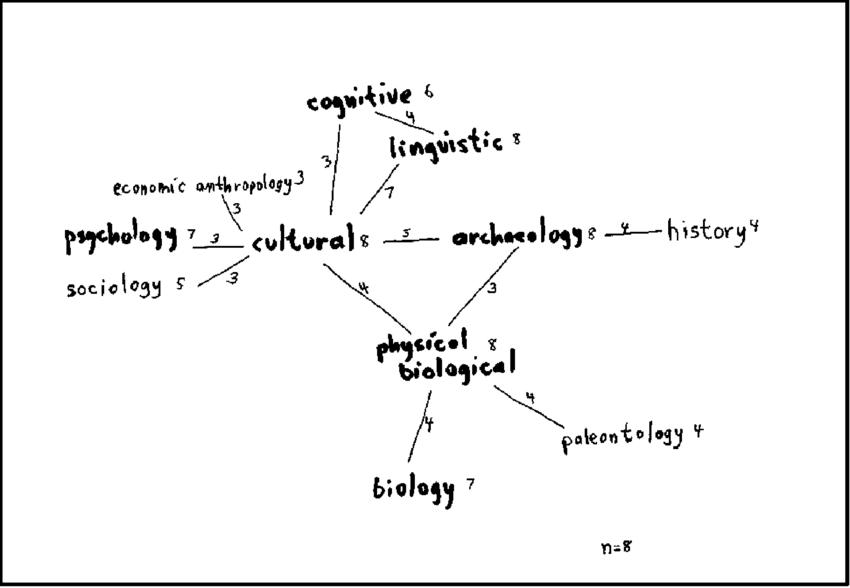 cognitive 6
4
linguistic 8
3
7
economic anthropology 3
3
psychology 7
3
cultural 8
5
archaeology 8
4
history 4
sociology 5
3
4
3
physical 8
biological
4
4
paleontology 4
biology 7
n=8